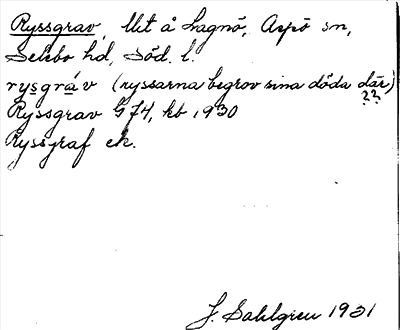 Ryssgrav, Mt å Lagnö, Aspö sn,
Selebo hd, Söd. l.
rysgráv (ryssarna begrov sina döda där)
??
Ryssgrav G 74, kb 1930
Ryssgraf ek.
J. Sahlgren 1931